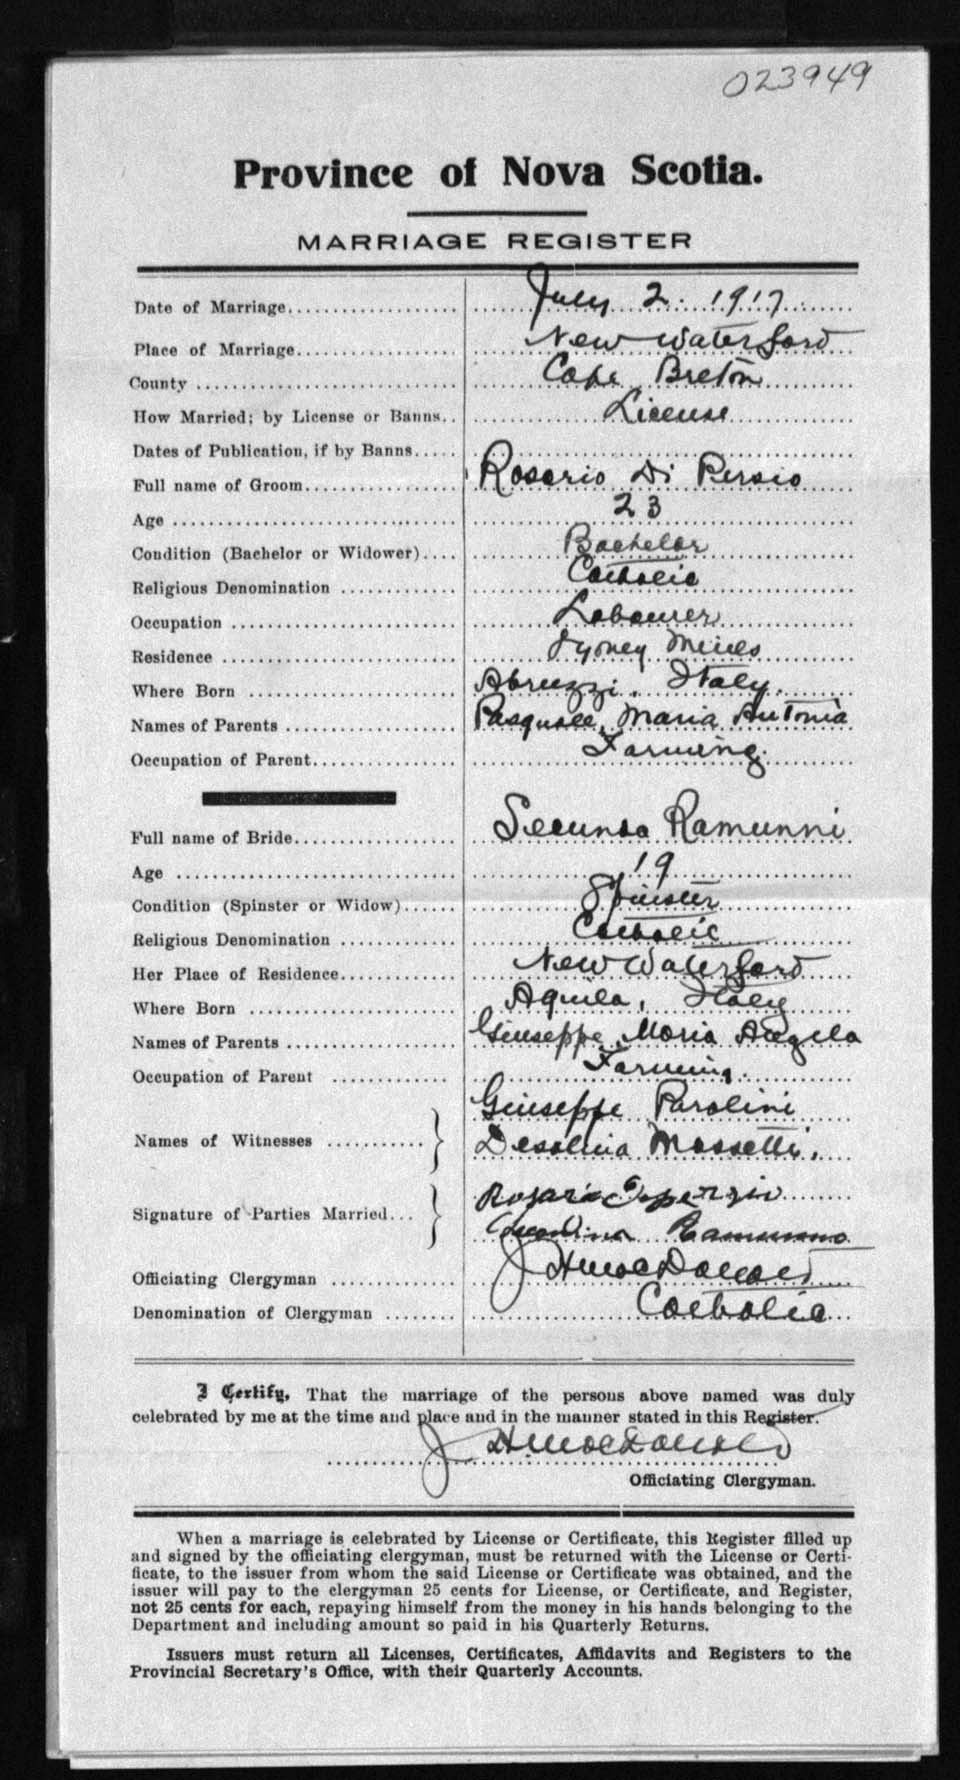 023949
Province of Nova Scotia.
MARRIAGE REGISTER
Date of Marriage.................. July 2. 1917.
Place of Marriage................. New Waterford
County .......................... Cape Breton
How Married; by License or Banns.. License
Dates of Publication, if by Banns.....
Full name of Groom................ Rosario Di Persio
Age ............................ 23
Condition (Bachelor or Widower).... Bachelor
Religious Denomination ............ Catholic
Occupation ...................... Labourer
Residence ....................... Sydney Mines
Where Born ..................... Abruzzi, Italy.
Names of Parents ................. Pasquale, Maria Antonia
Occupation of Parent............... Farming.
Full name of Bride................. Secunda Ramunni
Age ............................ 19
Condition (Spinster or Widow)...... Spinster
Religious Denomination ............ Catholic
Her Place of Residence............. New Waterford
Where Born ..................... Aquila, Italy
Names of Parents ................. Giuseppe, Maria Angela
Occupation of Parent ............ Farming.
Giuseppe Parolini
Names of Witnesses ........... } Mossetti.
Signature of Parties Married... }
Officiating Clergyman ............. J H MacDonald
Denomination of Clergyman ........ Catholic
I Certify, That the marriage of the persons above named was duly
celebrated by me at the time and place and in the manner stated in this Register.
J H MacDonald
Officiating Clergyman.
When a marriage is celebrated by License or Certificate, this Register filled up
and signed by the officiating clergyman, must be returned with the License or Certi-
ficate, to the issuer from whom the said License or Certificate was obtained, and the
issuer will pay to the clergyman 25 cents for License, or Certificate, and Register,
not 25 cents for each, repaying himself from the money in his hands belonging to the
Department and including amount so paid in his Quarterly Returns.
Issuers must return all Licenses, Certificates, Affidavits and Registers to the
Provincial Secretary's Office, with their Quarterly Accounts.